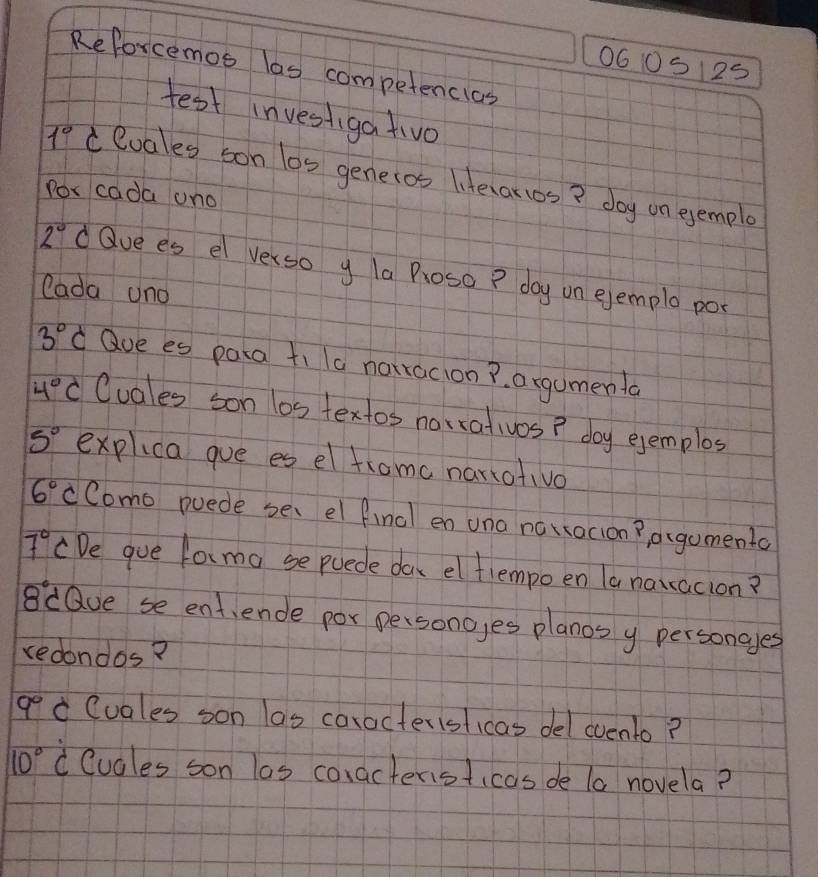 06 05 25
Reforcemos las competencias
test investigativo
1° ¿Cuales son los generos literarios? doy un egemplo
por cada uno
2° ¿Que es el verso y la Prosa? doy un ejemplo por
Cada uno
3° ¿Que es para ti la narracion?. argumenta
4° ¿Cuales son los textos narrativos? doy ejemplos
5° explica que es el trama narrativo
6° ¿Como puede ser el final en una narracion?, argumenta
7° ¿De que forma se puede dar el tiempo en la narracion?
8° ¿Que se entiende por personajes planos y personajes
redondos?
9° ¿Cuales son las caracteristicas del cuento?
10° ¿Cuales son las caracteristicas de la novela?